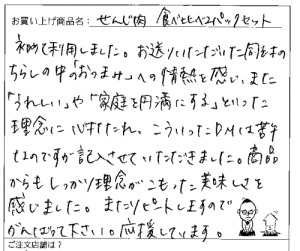 お買い上げ商品名：せんじ肉 食べ比べ2パックセット
初めて利用しました。お送りいただいた同封の
ちらしの中「おつまみ」への情熱を感じ、また
「うれしい」や「家庭を円満にする」といった
理念に心打たれ、こういったDMは苦手
なのですが記入させていただきました。商品
からもしっかり理念がこもった美味しさを
感じました。またリピートしますので
がんばって下さい。応援しています。
ご注文店舗は？